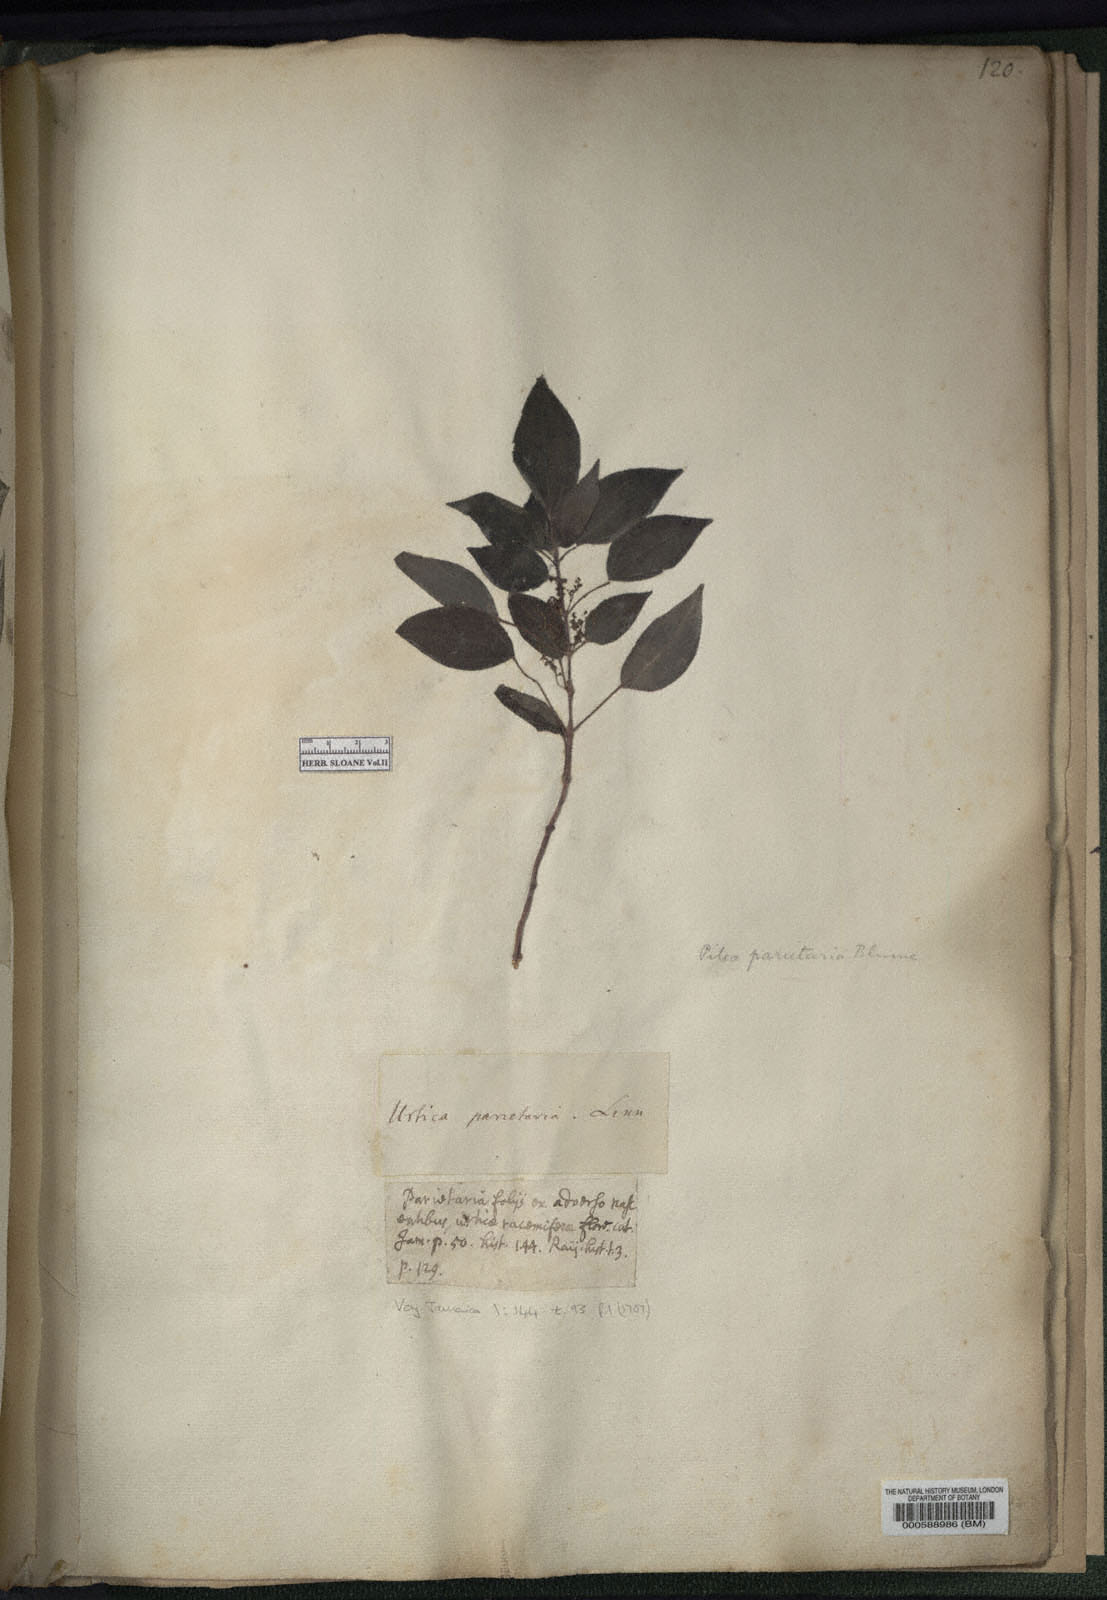 120.
1 2 3
HERB. SLOANE Vol.II
Pilea parietaria Blume
Urtica parietaria. Linn
Parietaria folijs ex adverso nasc
entibus, urticæ racemiferæ flore. cat.
Jam. p. 50. hist. 144. Raij. hist. t. 3.
p. 129.
Voy. Jamaica 1: 144 t. 93 f.1 (1707)
THE NATURAL HISTORY MUSEUM, LONDON
DEPARTMENT OF BOTANY
000588986 (BM)